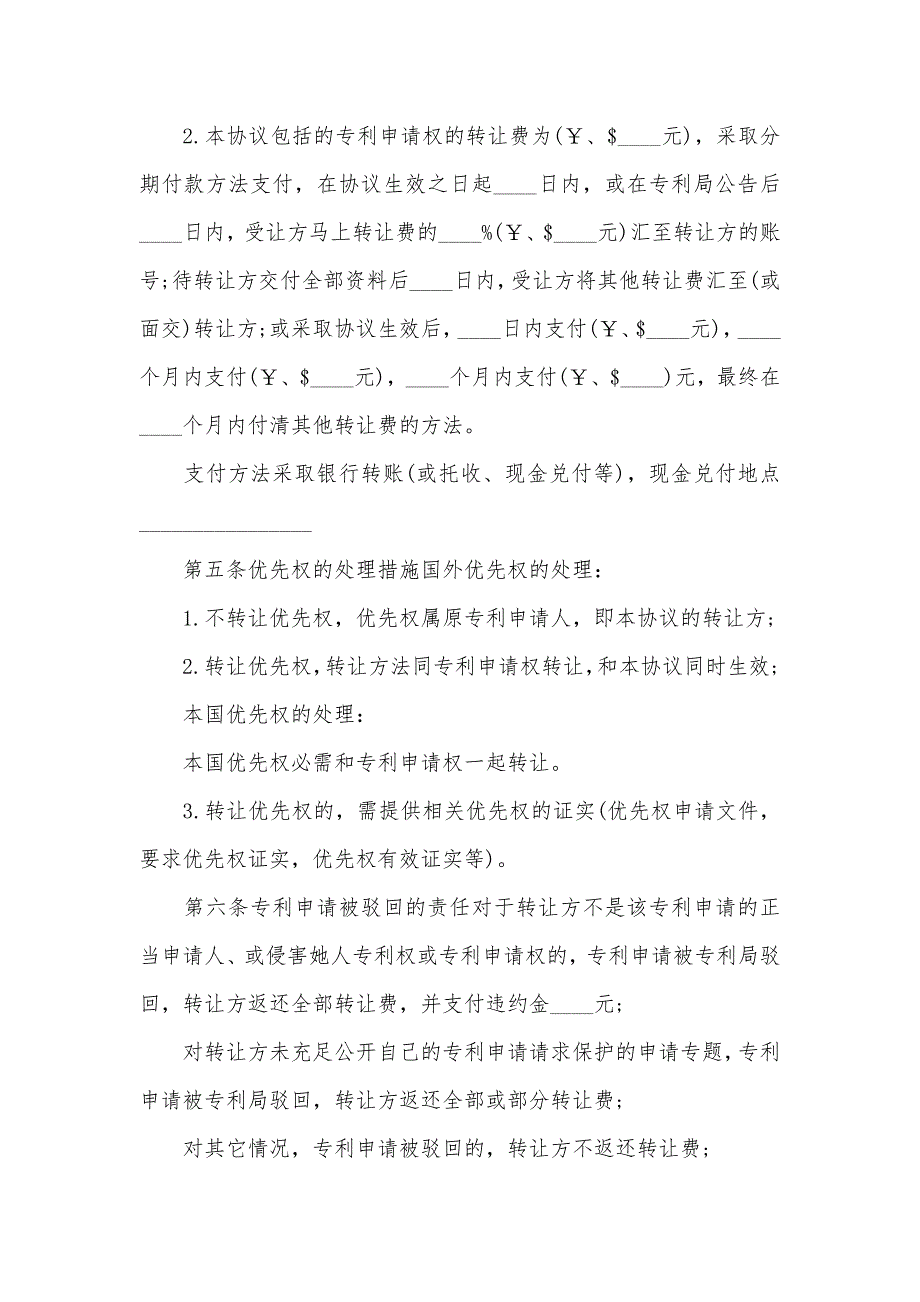 2.本协议包括的专利申请权的转让费为(￥、$____元)，采取分
期付款方法支付，在协议生效之日起____日内，或在专利局公告后
____日内，受让方马上转让费的____%(￥、$____元)汇至转让方的账
号;待转让方交付全部资料后____日内，受让方将其他转让费汇至(或
面交)转让方;或采取协议生效后，____日内支付(￥、$____元)，____
个月内支付(￥、$____元)，____个月内支付(￥、$____)元，最终在
____个月内付清其他转让费的方法。
支付方法采取银行转账(或托收、现金兑付等)，现金兑付地点
________________
第五条优先权的处理措施国外优先权的处理：
1.不转让优先权，优先权属原专利申请人，即本协议的转让方;
2.转让优先权，转让方法同专利申请权转让，和本协议同时生效;
本国优先权的处理：
本国优先权必需和专利申请权一起转让。
3.转让优先权的，需提供相关优先权的证实(优先权申请文件，
要求优先权证实，优先权有效证实等)。
第六条专利申请被驳回的责任对于转让方不是该专利申请的正
当申请人、或侵害她人专利权或专利申请权的，专利申请被专利局驳
回，转让方返还全部转让费，并支付违约金____元;
对转让方未充足公开自己的专利申请请求保护的申请专题，专利
申请被专利局驳回，转让方返还全部或部分转让费;
对其它情况，专利申请被驳回的，转让方不返还转让费;